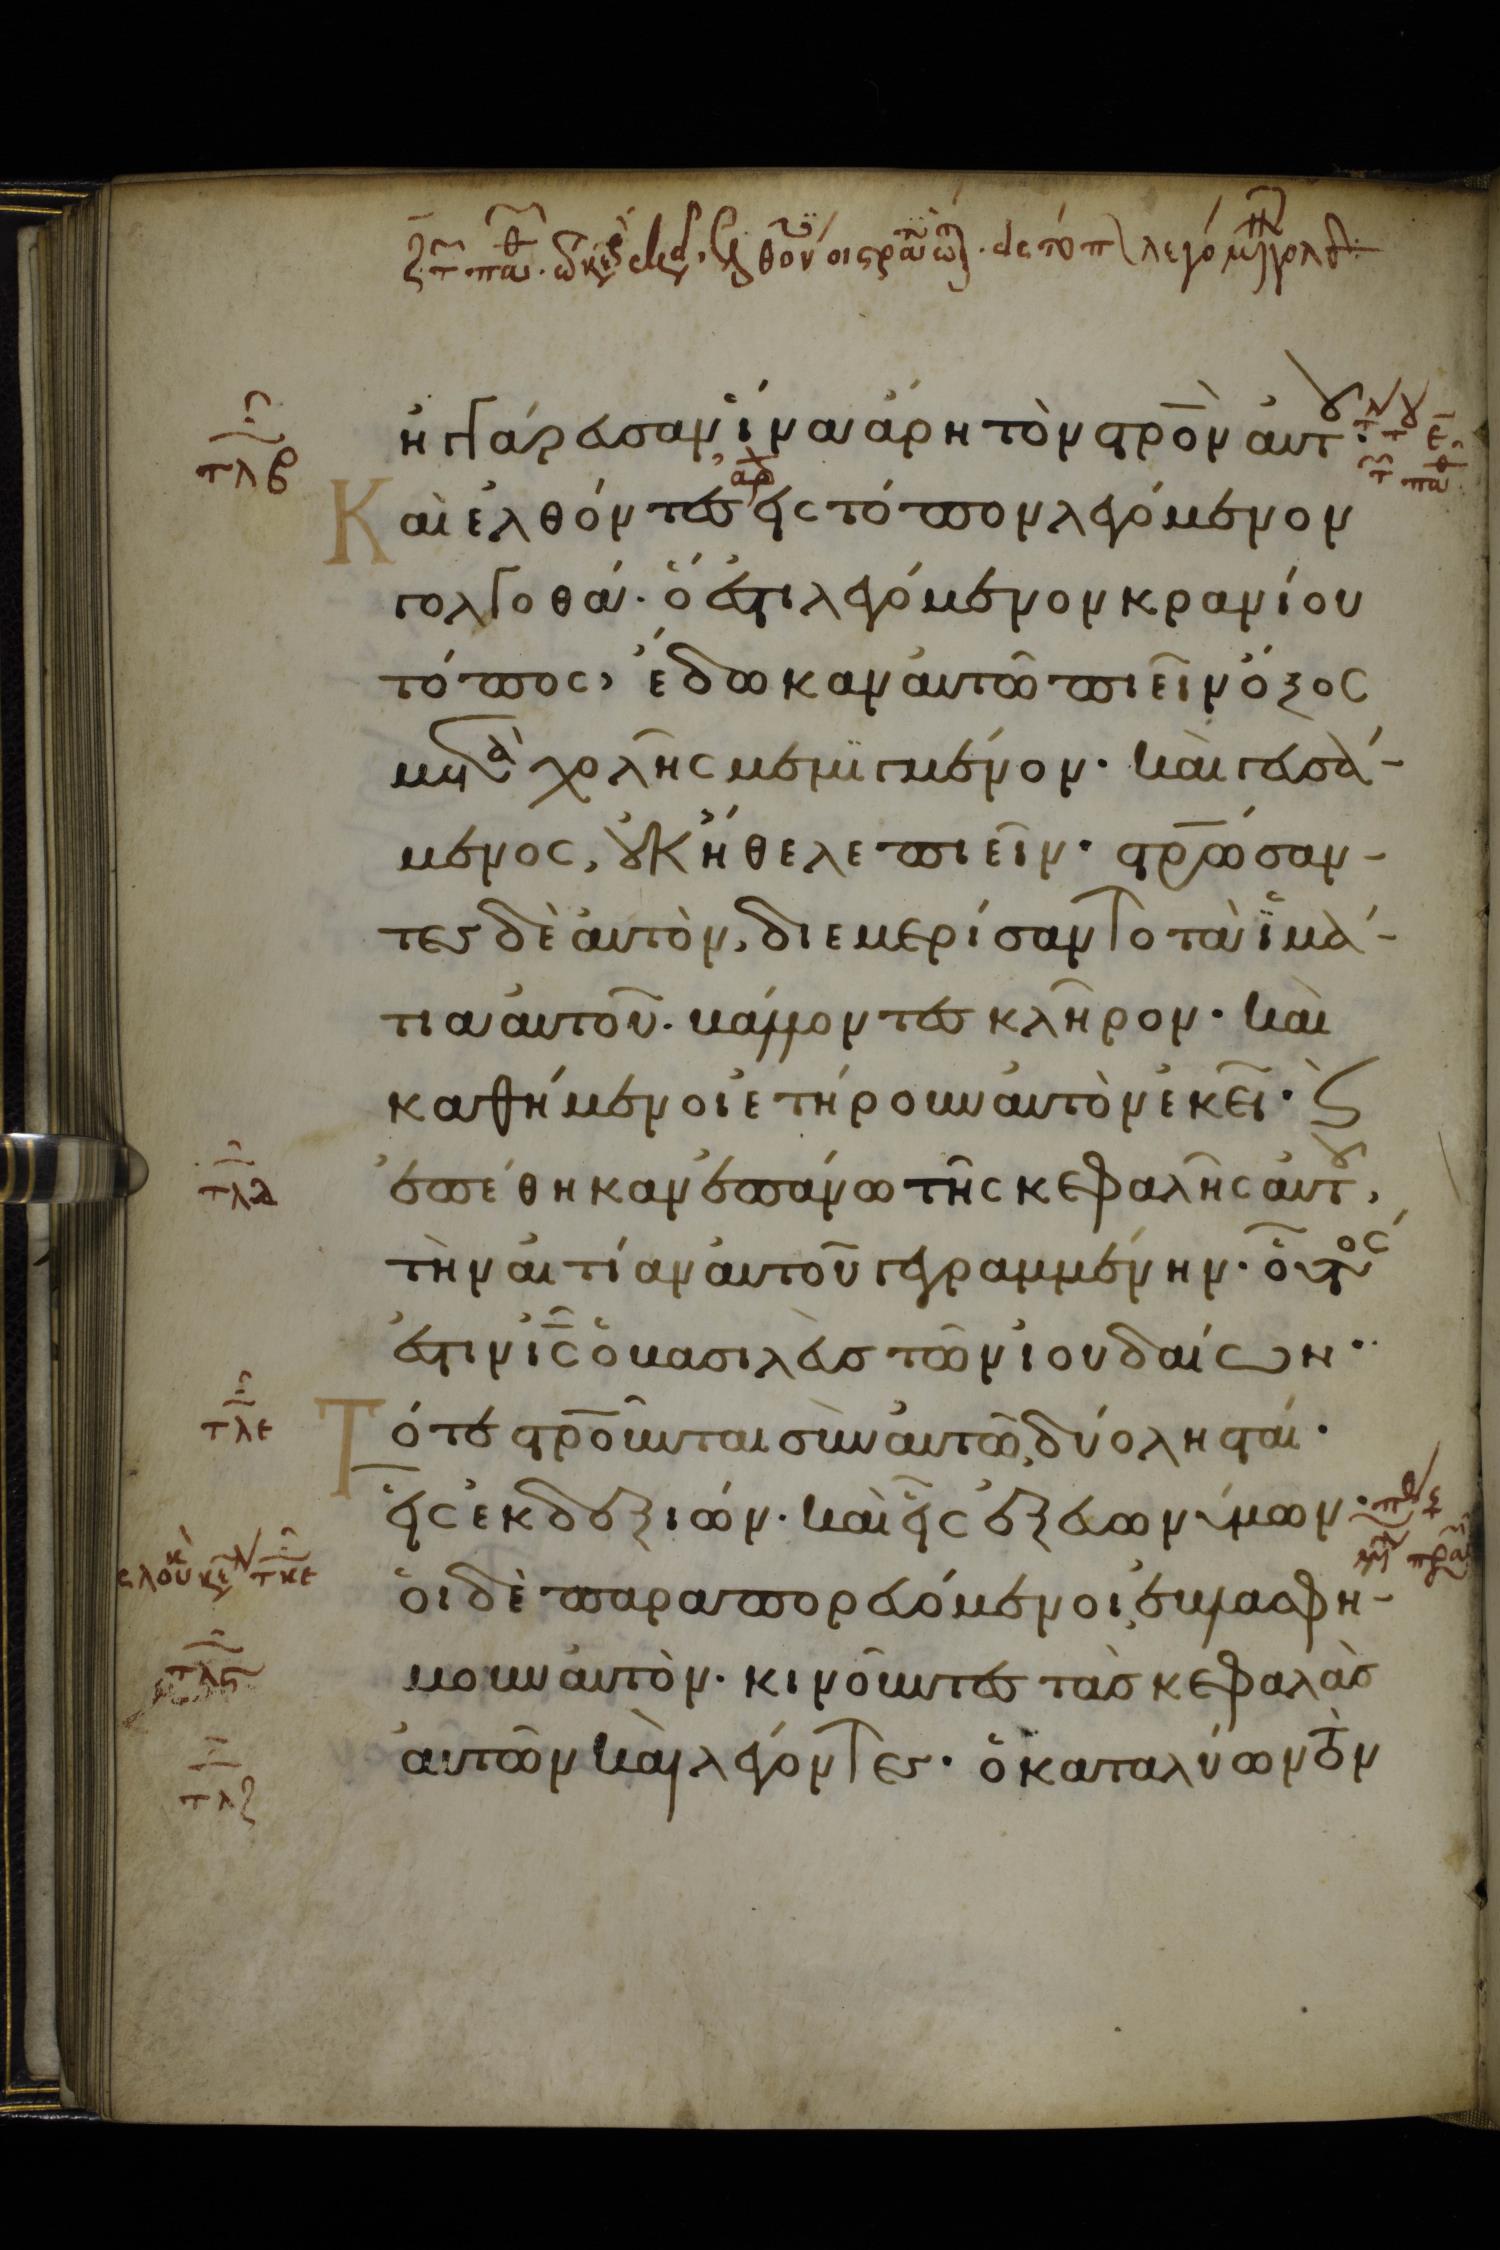 ἠγγάρευσαν ἵνα ἄρη τὸν στρον αυτου·
Και ελθόντες εις τόπον λεγόμενον
γολγοθά· ὅ ἐστι λεγόμενον κρανίου
τόπος, ἔδωκαν αυτῶ πιεῖν ὄξος
μετὰ χολῆς μεμιγμένον· καὶ γευσά-
μενος, οὐκ ἤθελε πιεῖν· στρώσαν-
τες δὲ ἀυτὸν, διεμερίσαντο τὰ ἱμά-
τια αυτοῦ· βάλλοντες κλῆρον· καὶ
καθήμενοι ἐτήρουν ἀυτὸν ἐκεῖ· καὶ
ἐπέθηκαν ἐπάνω τῆς κεφαλῆς ἀυτου,
τὴν αἰτίαν ἀυτοῦ γεγραμμένην· οὗτός
ἐστιν ις ὁ βασιλεὺς τῶν ἰουδαίων··
Τότε στροῦνται σὺν ἀυτῶ, δύο λησταί·
εἷς ἐκ δεξιῶν· καὶ εἷς ἐξ ευωνύμων·
ὁι δὲ παραπορευόμενοι, ἐβλασφή-
μουν ἀυτὸν· κινοῦντες τὰς κεφαλὰς
ἀυτῶν καὶ λέγοντες· ὁ καταλύων τὸν
τλβ
τλδ
τλε
τλς
τλζ